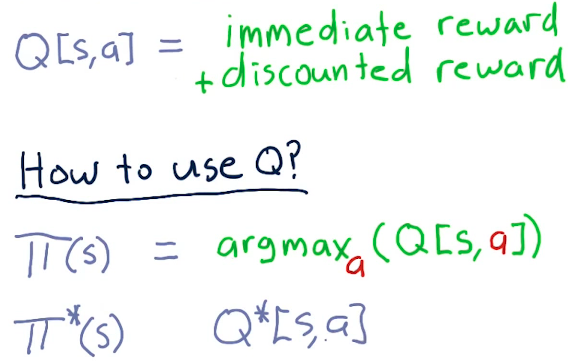 Q[s,a] = immediate reward
+ discounted reward
How to use Q?
Π(s) = argmaxₐ(Q[s,a])
Π*(s) Q*[s,a]